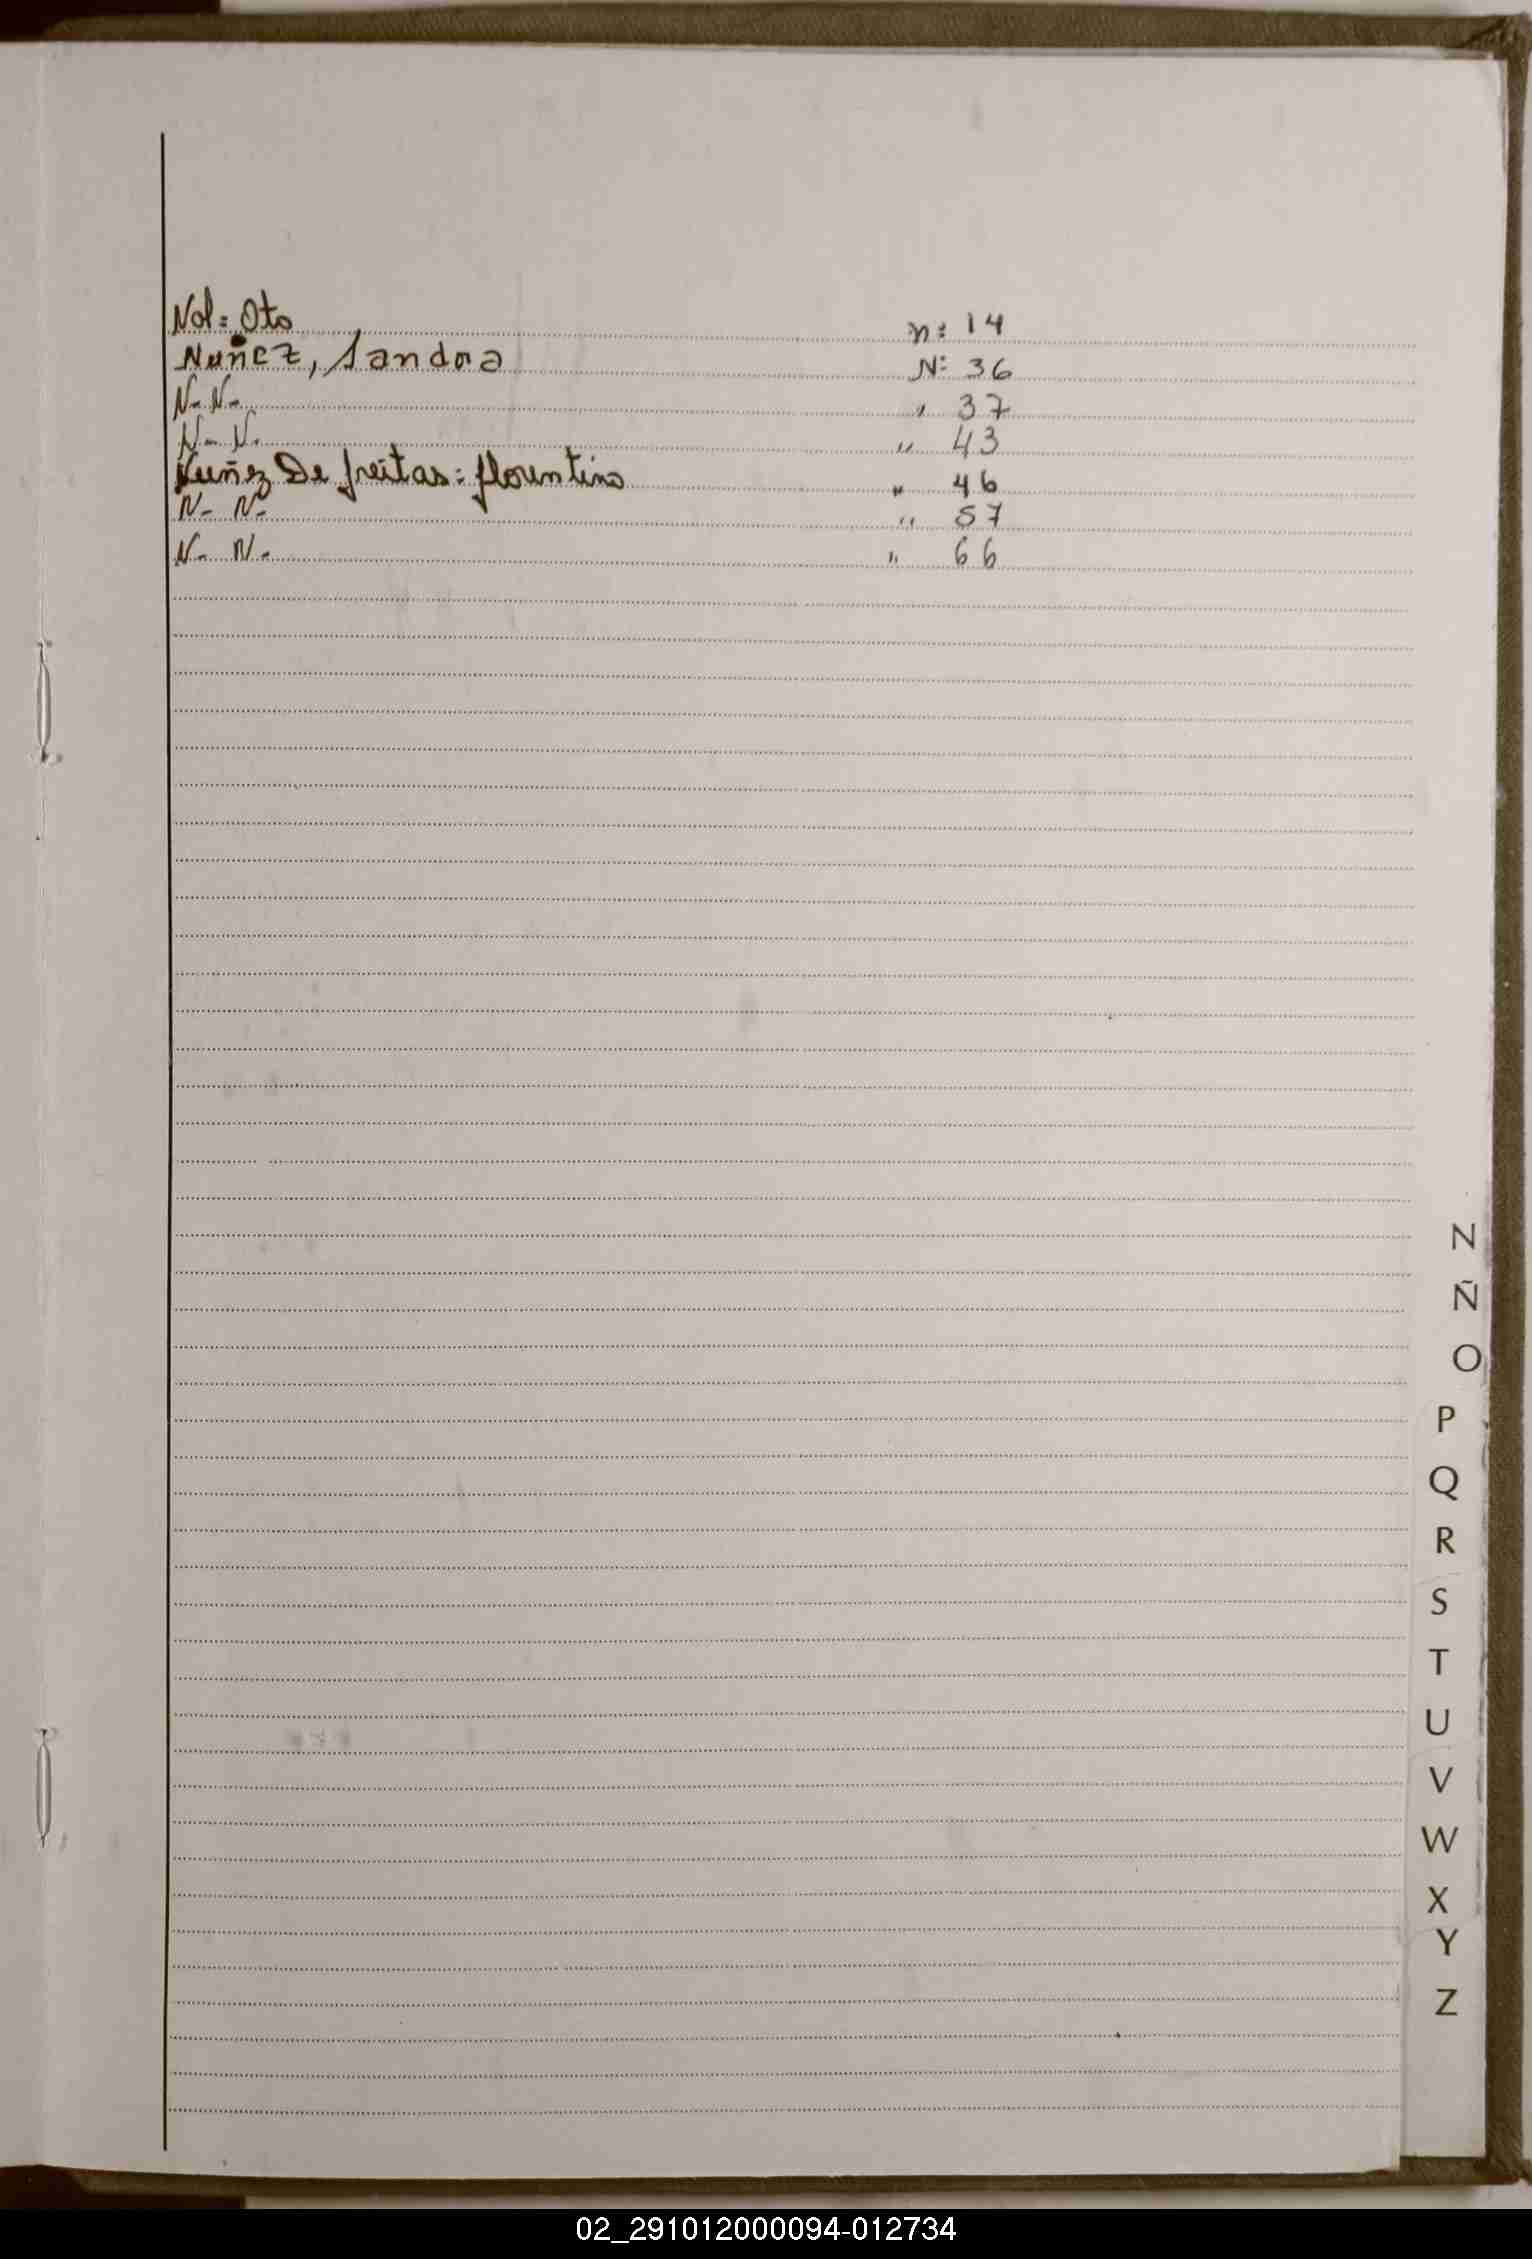 Nol: Oto n: 14
Nuñez, Sandra N: 36
N- N- " 37
N- N- " 43
Nuñez De freitas: florentino " 46
N- N- " 57
N- N- " 66
N
Ñ
O
P
Q
R
S
T
U
V
W
X
Y
Z
02_291012000094-012734